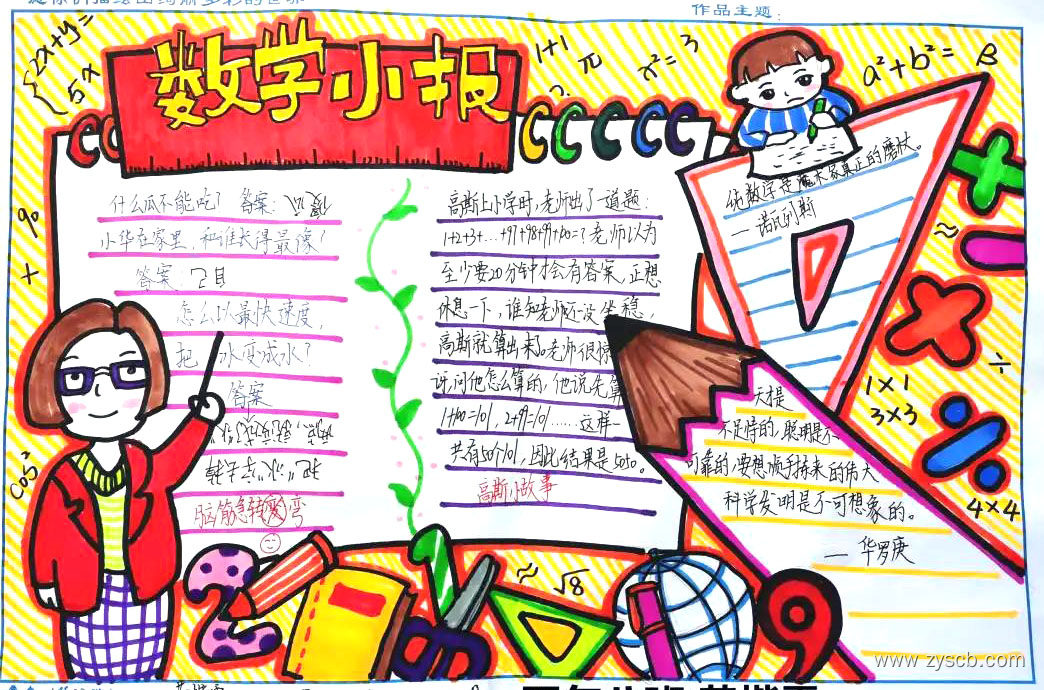 作品主题：
数学小报
2x+y=
5x
1+1
π
x²=3
a²+b²=
B
什么瓜不能吃？ 答案：傻瓜
小华在家里，和谁长得最像？
答案 自己
怎么以最快速度，
把 冰变成水？
答案
把“冰”字去掉
两点，就变成“水”
脑筋急转弯
高斯上小学时，老师出了一道题：
1+2+3+…+97+98+99+100=？老师以为
至少要20分钟才会有答案，正想
休息一下，谁知老师还没坐稳，
高斯就算出来了。老师很惊
讶，问他怎么算的，他说先算
1+100=101，2+99=101……这样一
共有50个101，因此结果是5050。
高斯小故事
纯数学是魔术家真正的魔杖。
—诺瓦列斯
天才是
不足恃的，聪明是不
可靠的，要想顺手拣来的伟大
科学发明是不可想象的。
— 华罗庚
90
+
cos²
≈
÷
1×1
3×3
4×4
≈
√8
2
9
www.zyscb.com